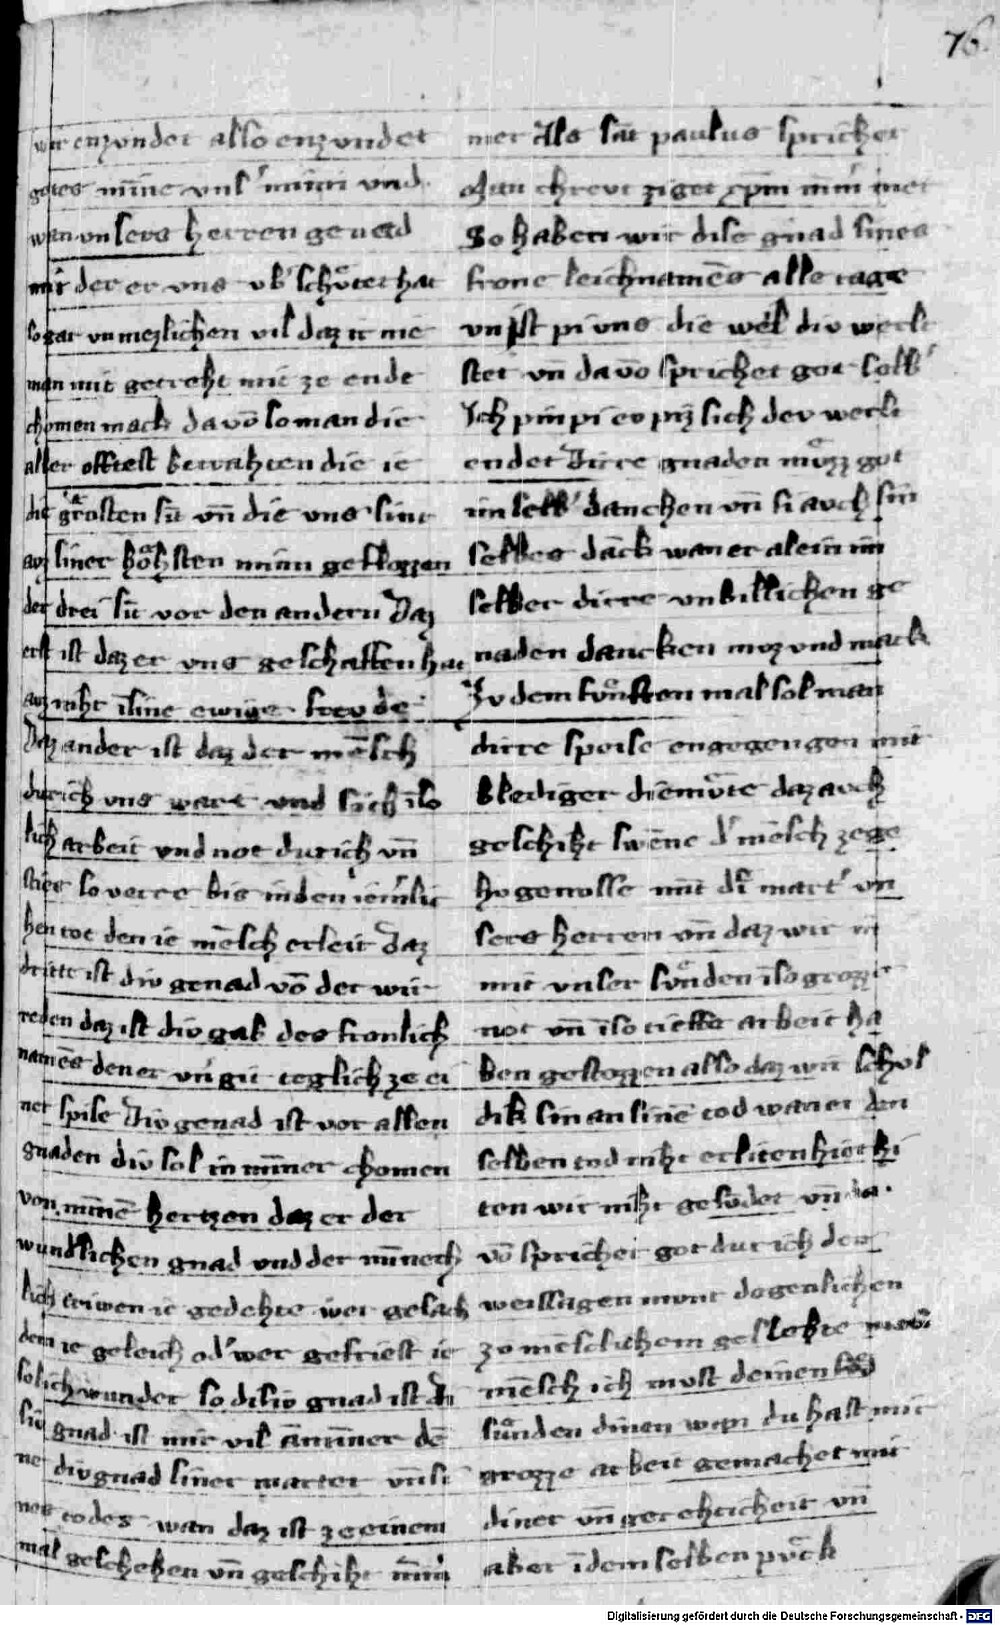 76
wir enzvndet also enzvndet
gotes mīne vns
wan vnsers herren genad
mit der er vns vb' schůtet hat
so gar vnmezlichen vil daz ir nie
man mit gerecht mit ze ende
chomen mack da vō so man die
aller offtest betrahten die ie
die grosten sit vn̄ die vns sint
avz siner hohsten minn geflozzen
der drei sit vor den andern Daz
erst ist daz er vns geschaffen hat
avz niht īsine ewige frevde
Daz ander ist daz der mēsch
durich vns wart vnd sich īso
lich arbeit vnd not durich vn̄
so verre bis in den
hen tot den ie mēsch erleit Daz
dritt ist div genad vō der wir
reden daz ist div gab des fronlich
namēs den er vn̄ git teglich ze ei
ner spise Div genad ist vor allen
gnaden div sol in mīner chomen
von mīnē hertzen daz er der
wundlichen gnad vnd der mīnech
lich triwen ie gedehte wer gesach
dem ie geleich od' wer gefriest ie
solich wunder so disiv gnad ist
gnad ist mir vil dē
ne div gnad siner marter vn̄ si
nes todes wan daz ist ze einem
mal geschehen vn̄ geschiht
mer Als sāt paulus sprichet
So haben wir dise gnad sines
frone leichnamēs alle tage
vn̄ ist pi vns die wēl div werlt
stet vn̄ da vō sprichet got selb'
Ich pin pi ev piz sich dev werlt
endet Dirre gnaden mvͦzz got
im selb' danchen vn̄ si avch sin
selbes dāck wan er alein im
selber dirre vnbillichen ge
naden dancken moz vnd mack
Zv dem fvnften mal sol man
dirre speise engegen gen mit
diemvͤte daz avch
geschiht swēne d' mēsch ze ge
hvgenvsse mit d' mart' vn
sers herren vn̄ daz wir in
mit vnser svnden īso grozze
not vn̄ īso tieffe arbeit ha
ben gestozzen also daz wir schol
dik sin an sinē tod wan er den
selben tod niht erliten hiet hi
ten wir niht gesvdet vn̄ da
vō sprichet got durich den
weissagen mvnt dogenlichen
zv mēschlichem geslehte
mēsch ich mvst deinen
svnden dinen wan du hast mir
grozze arbeit gemachet mit
diner vn̄gerehticheit vn̄
aber ī dem selben pvͦch
Digitalisierung gefördert durch die Deutsche Forschungsgemeinschaft - DFG